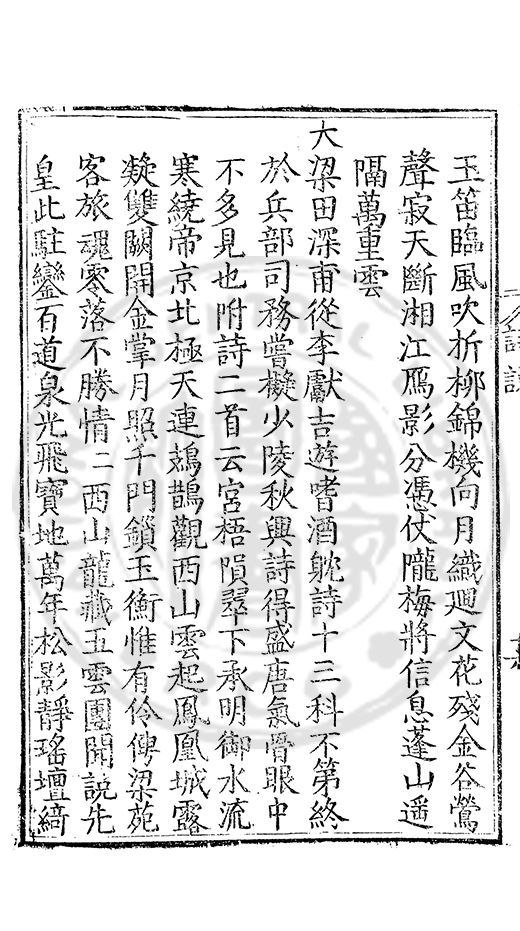 玉笛臨風吹折柳錦機向月織迴文花殘金谷鶯
聲寂天斷湘江鴈影分憑仗隴梅將信息蓬山遥
隔萬重雲
大梁田深甫從李獻吉遊嗜酒躭詩十三科不第終
於兵部司務嘗擬少陵秋興詩得盛唐氣骨眼中
不多見也附詩二首云宮梧隕翠下承明御水流
寒繞帝京北極天連鳷鵲觀西山雲起鳳凰城露
凝雙闕開金掌月照千門鎖玉衡惟有伶俜梁苑
客旅魂零落不勝情二西山龍藏五雲團聞說先
皇此駐鑾百道泉光飛寶地萬年松影靜瑤壇綺